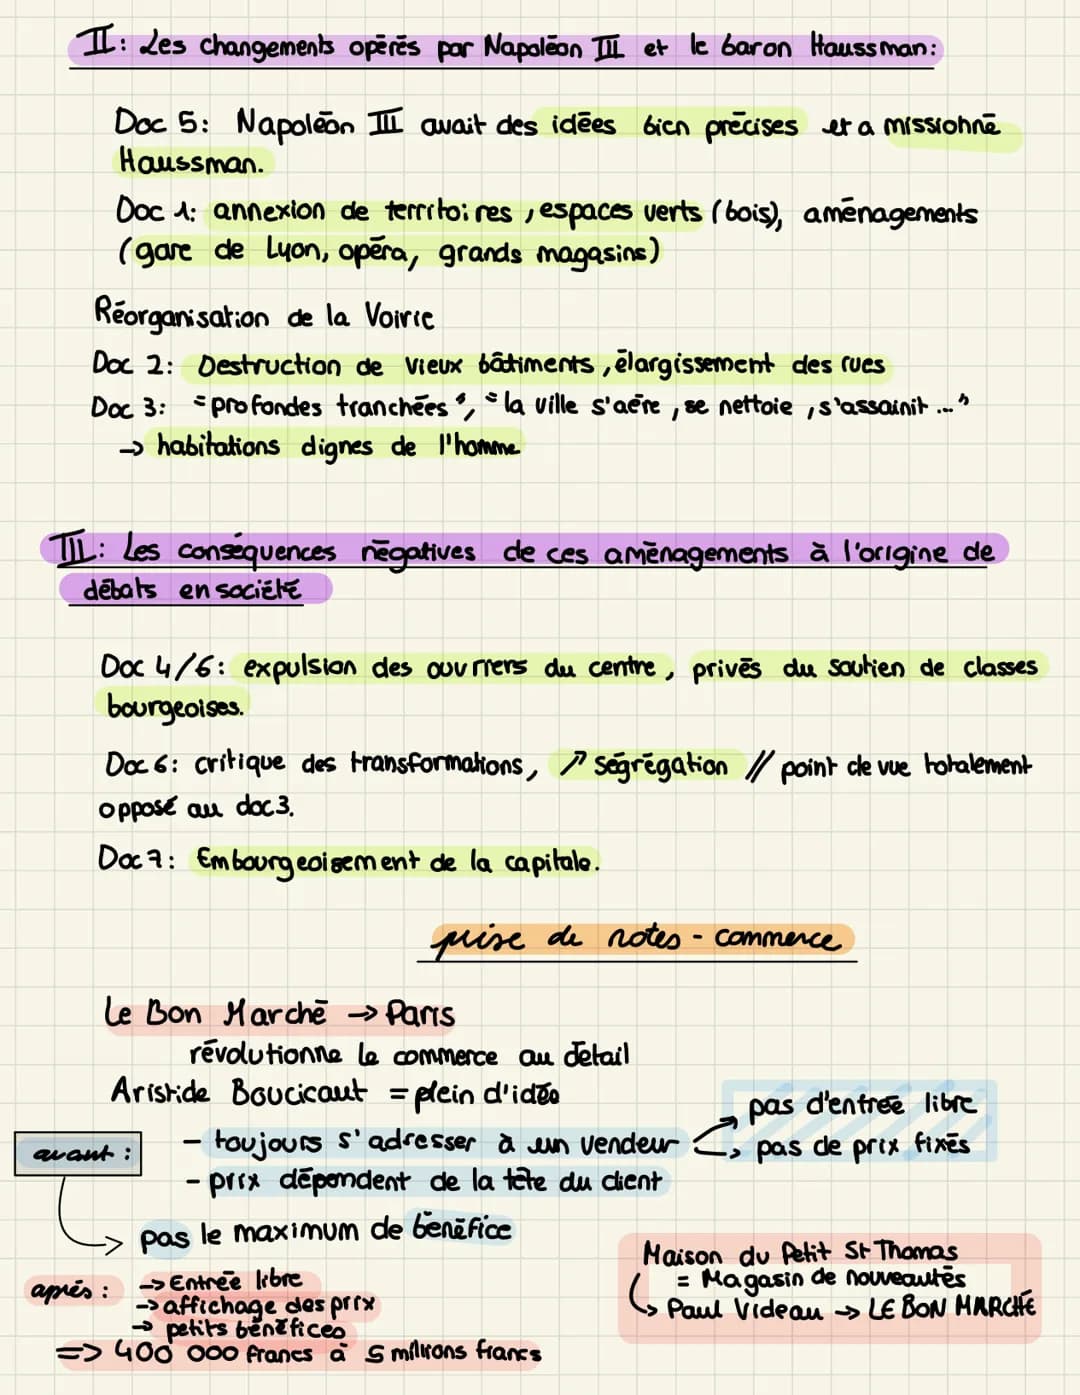 II: Les changements opérés par Napoléon III et le baron Haussman:
Doc 5: Napoléon III avait des idées bien précises et a missionné
Haussman.
Doc 1: annexion de territoires, espaces verts (bois), aménagements
(gare de Lyon, opéra, grands magasins)
Réorganisation de la Voirie
Doc 2: Destruction de vieux bâtiments, élargissement des rues
Doc 3: "profondes tranchées", "la ville s'aère, se nettoie, s'assainit..."
→ habitations dignes de l'homme
III: Les conséquences négatives de ces aménagements à l'origine de
débats en société
Doc 4/6: expulsion des ouvriers du centre, privés du soutien de classes
bourgeoises.
Doc 6: critique des transformations, ↗ ségrégation // point de vue totalement
opposé au doc 3.
Doc 7: Embourgeoisement de la capitale.
prise de notes - commerce
Le Bon Marché → Paris
révolutionne le commerce au détail
Aristide Boucicaut = plein d'idées
avant :
- toujours s'adresser à un vendeur
→ pas d'entrée libre
→ pas de prix fixés
- prix dépendent de la tête du client
→ pas le maximum de bénéfice
après :
→ Entrée libre
→ affichage des prix
→ petits bénéfices
=> 400 000 francs à 5 millions francs
Maison du Petit St Thomas
= Magasin de nouveautés
↳ Paul Videau → LE BON MARCHÉ